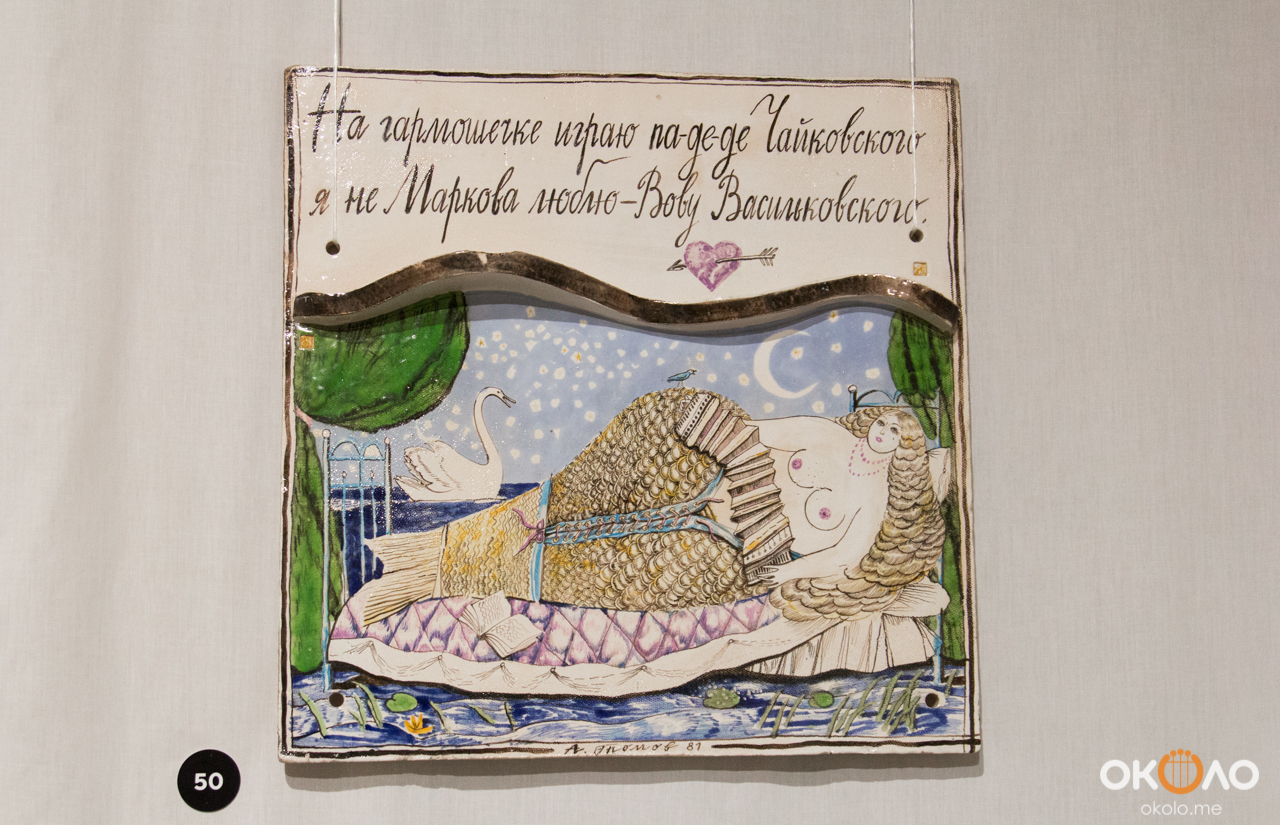 На гармошечке играю па-де-де Чайковского
я не Маркова люблю – Вову Васильковского.
81
50
ОКОЛО
okolo.me